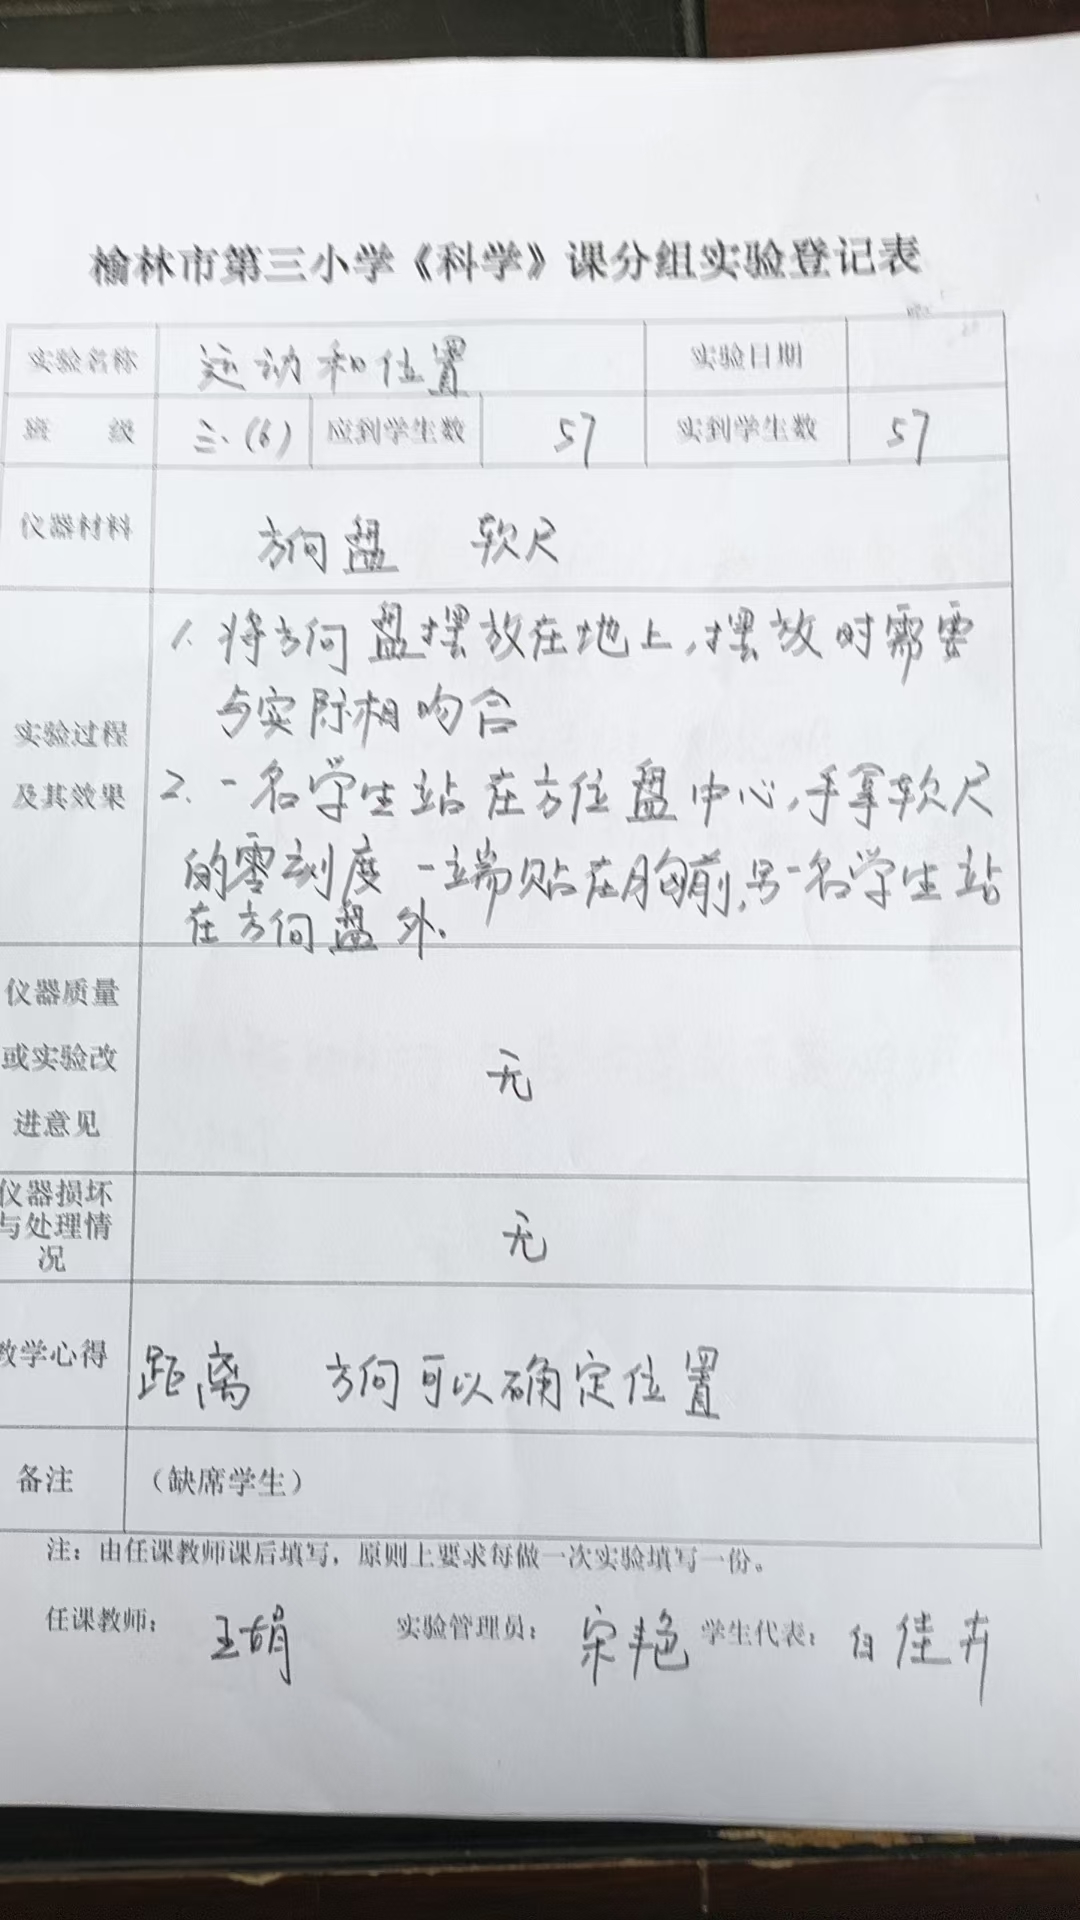 榆林市第三小学《科学》课分组实验登记表
实验名称 运动和位置 实验日期
班 级 三.(6) 应到学生数 57 实到学生数 57
仪器材料 方向盘 软尺
实验过程
及其效果
1. 将方向盘摆放在地上,摆放时需要
与实际相吻合
2. 一名学生站在方位盘中心,手拿软尺
的零刻度一端贴在胸前,另一名学生站
在方向盘外.
仪器质量
或实验改
进意见
无
仪器损坏
与处理情
况
无
教学心得 距离 方向可以确定位置
备注 (缺席学生)
注:由任课教师课后填写,原则上要求每做一次实验填写一份。
任课教师: 王娟 实验管理员: 宋艳 学生代表: 白佳卉